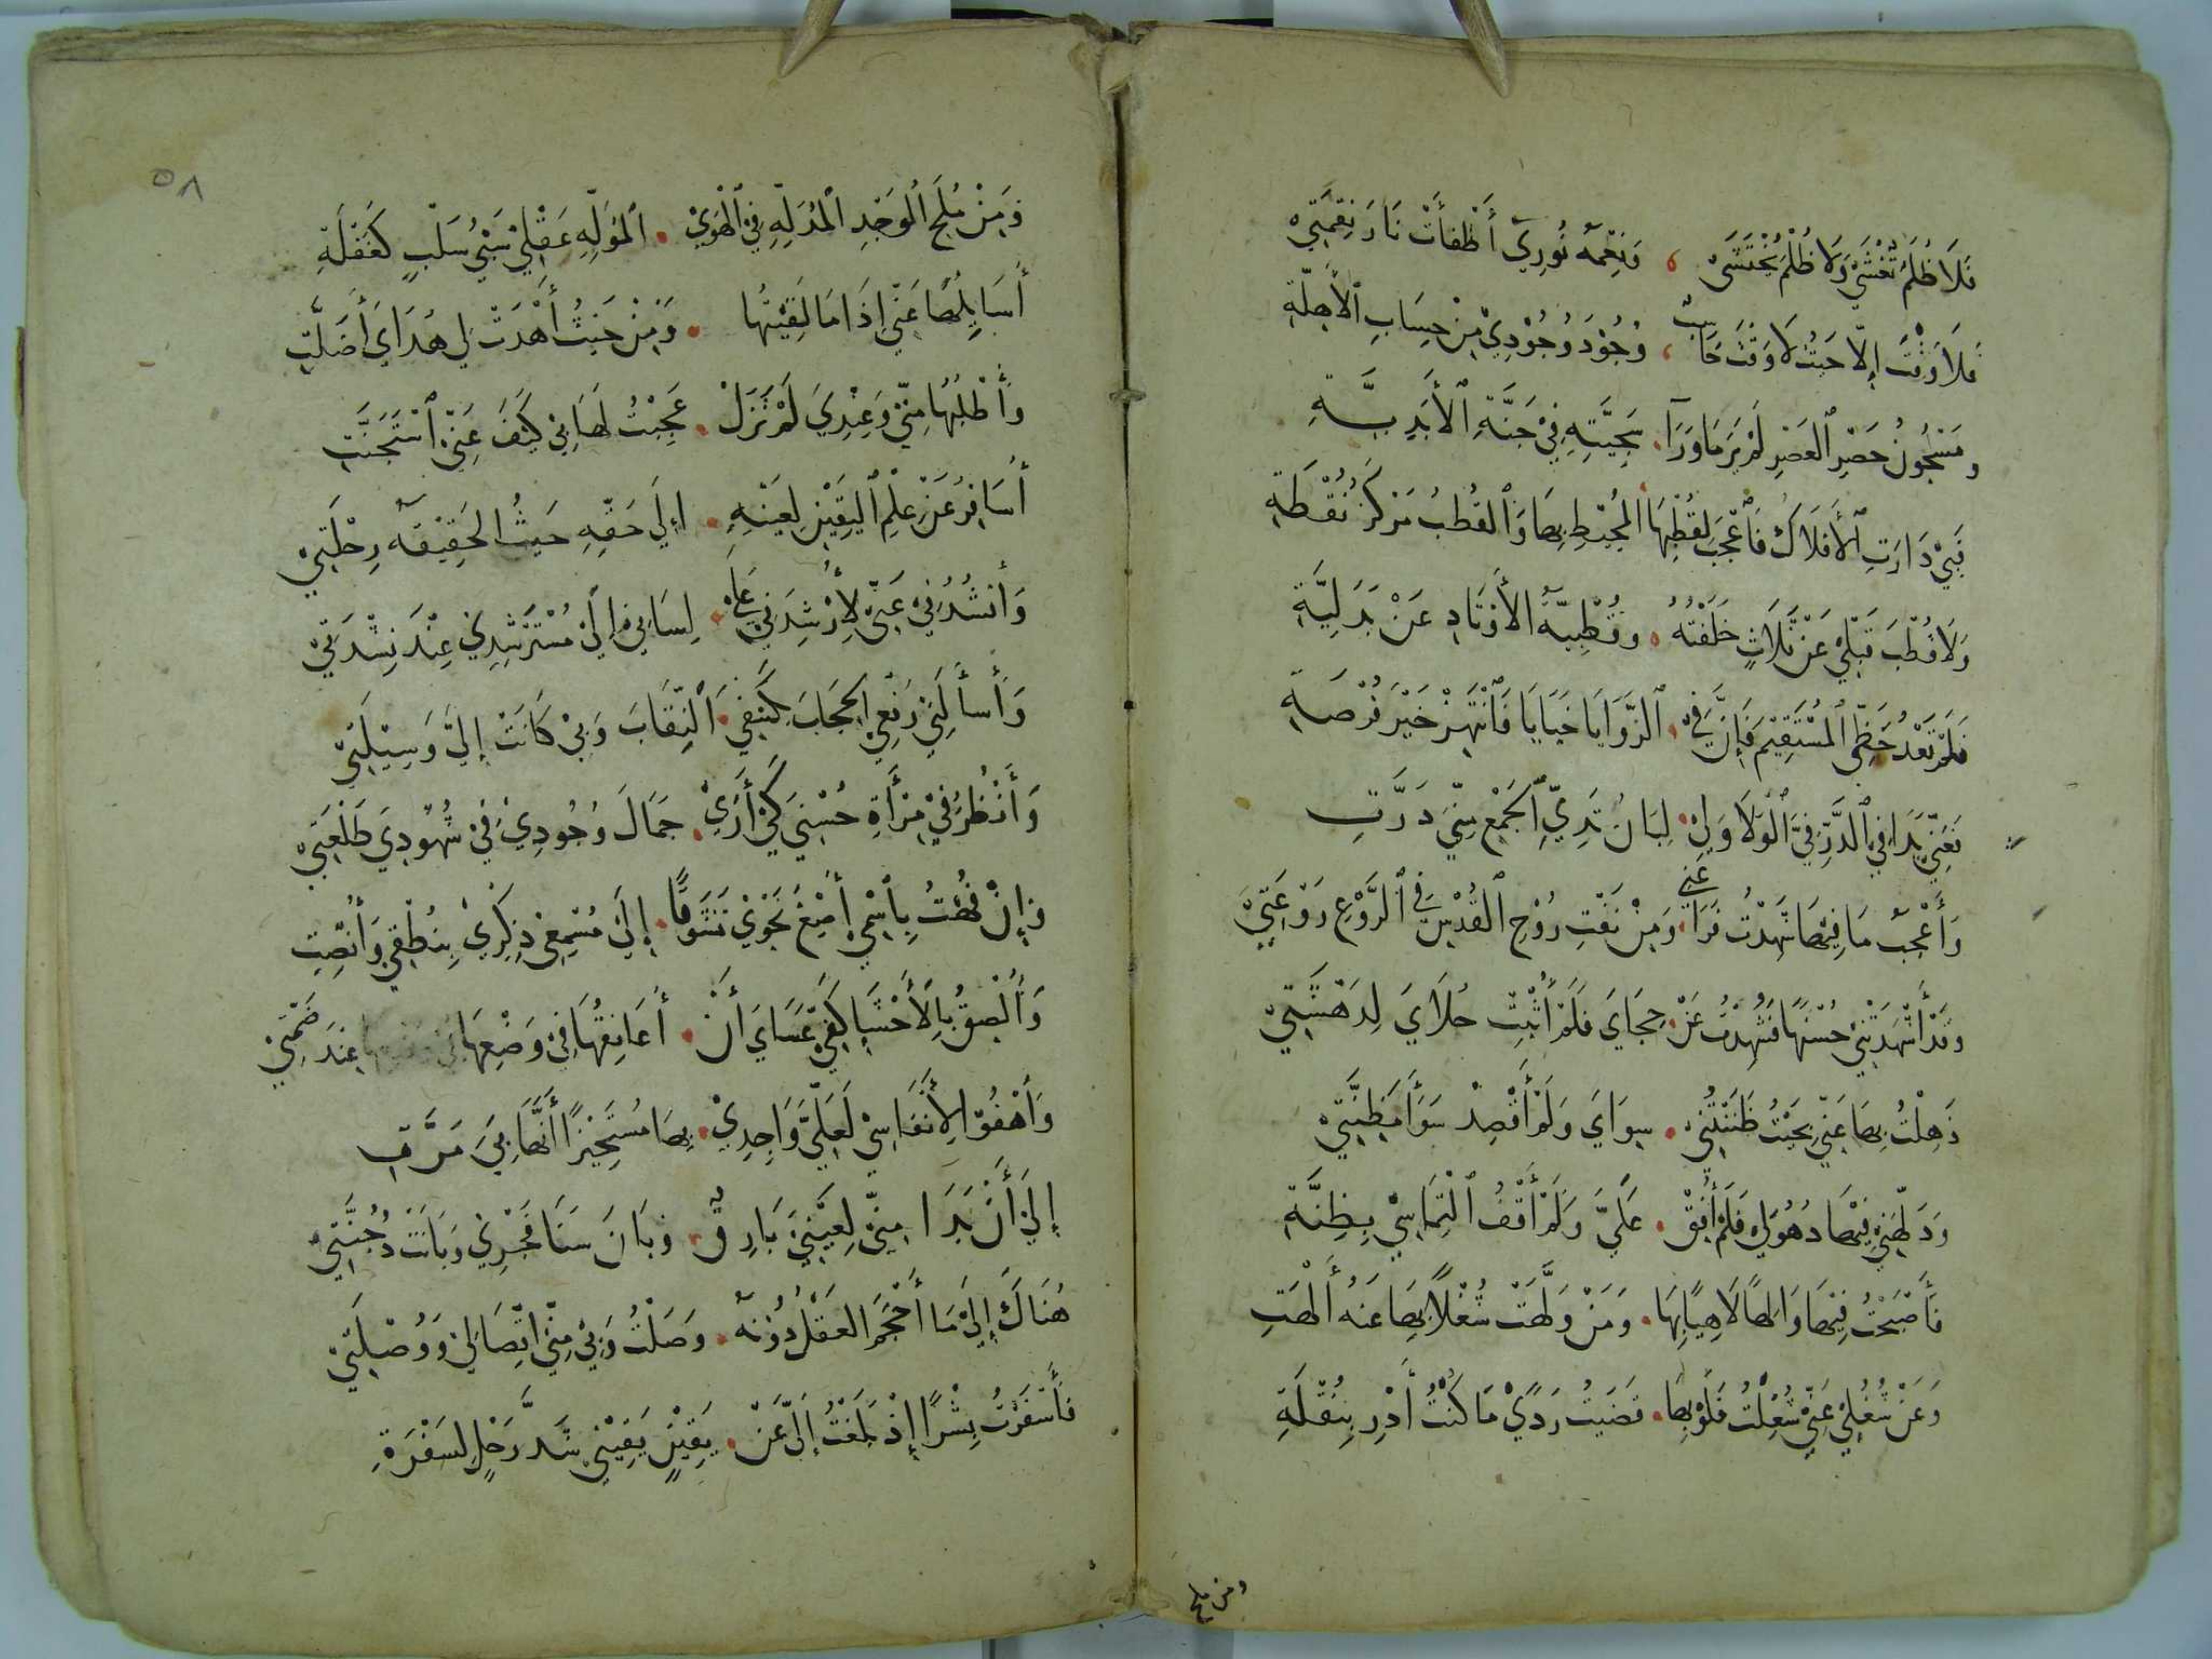 فَلَا ظُلَمٌ تُغْشَىٰ وَلَا ظُلْمَ يُخْتَشَى ، وَنِعْمَةُ نُورِي أَطْفَأَتْ نَارَ نِقْمَتِي
فَلَا وَقْتَ إِلَّا حَيْثُ لَا وَقْتَ حَاسِبٌ ، وُجُودَ وُجُودِي مِنْ حِسَابِ الْأَهِلَّةِ
وَمَسْجُونُ حَصْرِ الْعَصْرِ لَمْ يَرَ مَا وَرَآ . سَجِيَّتِهِ فِي جَنَّةِ الْأَبَدِيَّةِ
فَبِي دَارَتِ الْأَفْلَاكُ فَاعْجَبْ لِقُطْبِهَا الْمُحِيطِ بِهَا وَالْقُطْبُ مَرْكَزُ نُقْطَةِ
وَلَا قُطْبَ قَبْلِي عَنْ ثَلَاثٍ خَلَفْتُهُ . وَقُطْبِيَّةُ الْأَوْتَادِ عَنْ بَدَلِيَّةِ
فَلَمْ تَعْدُ خَطِّي الْمُسْتَقِيمَ فَإِنَّ فِي . الزَّوَايَا خَبَايَا فَانْتَهِزْ خَيْرَ فُرْصَةِ
فَعَنِّي بَدَا فِي الذَّرِّ فِيَّ الْوَلَا وَلِي . لِبَانُ ثَدِيِّ الْجَمْعِ مِنِّيَ دَرَّتِ
وَأَعْجَبُ مَا فِيهَا شَهِدْتُ فَرَاعَنِي . وَمِنْ نَفْثِ رُوْحِ الْقُدْسِ فِي الرَّوْعِ رَوْعَتِي
وَقَدْ أَشْهَدَتْنِي حُسْنَهَا فَشُدِهْتُ عَنْ . حِجَايَ فَلَمْ أُثْبِتْ حُلَايَ لِدَهْشَتِي
ذَهِلْتُ بِهَا عَنِّي بِحَيْثُ ظَنَنْتُنِي . سِوَايَ وَلَمْ أَقْصِدْ سَوَآءَ مَظِنَّتِي
وَدَلَّهَنِي فِيهَا ذُهُولِي فَلَمْ أُفِقْ . عَلَيَّ وَلَمْ أَقْفُ الْتِمَاسِي بِظِنَّةِ
فَأَصْبَحْتُ فِيهَا وَالِهًا لَاهِيًا بِهَا . وَمَنْ وَلَّهَتْ شُغْلًا بِهَا عَنْهُ أَلْهَتِ
وَعَنْ شُغُلِي عَنِّي شُغِلْتُ فَلَوْ بِهَا . قَضَيْتُ رَدًى مَا كُنْتُ أَدْرِ بِنُقْلَةِ
ومن ملح
٥٨
وَمِنْ مُلَحِ الْوَجْدِ الْمُدَلِّهِ فِي الْهَوَىٰ . الْمُوَلِّهِ عَقْلِي سَبْيُ سَلْبٍ كَغَفْلَةِ
أُسَائِلُهَا عَنِّي إِذَا مَا لَقِيتُهَا . وَمِنْ حَيْثُ أَهْدَتْ لِي هُدَايَ أَضَلَّتِ
وَأَطْلُبُهَا مِنِّي وَعِنْدِيَ لَمْ تَزَلْ . عَجِبْتُ لَهَا بِي كَيْفَ عَنِّي اسْتَجَنَّتِ
أُسَافِرُ عَنْ عِلْمِ الْيَقِينِ لِعَيْنِهِ . إِلَى حَقِّهِ حَيْثُ الْحَقِيقَةُ رِحْلَتِي
وَأَنْشُدُنِي عَنِّي لِأُرْشِدَنِي عَلَى . لِسَانِي إِلَى مُسْتَرْشِدِي عِنْدَ نِشْدَتِي
وَأَسْأَلُنِي رَفْعِي الْحِجَابَ بِكَشْفِيَ . النِّقَابَ وَبِي كَانَتْ إِلَيَّ وَسِيلَتِي
وَأَنْظُرُ فِي مِرْأَةِ حُسْنِيَ كَيْ أَرَىٰ . جَمَالَ وُجُودِي فِي شُهُودِيَ طَلْعَتِي
وَإِنْ فُهْتُ بِاسْمِي أُصْغِ نَحْوِي تَشَوُّقًا . إِلَى مُسْمِعِي ذِكْرِي بِنُطْقِي وَأُنْصِتِ
وَأُلْصِقُ بِالْأَحْشَا كَفِّي عَسَايَ أَنْ . أُعَانِقَهَا فِي وَضْعِهَا عِنْدَ ضَمَّتِي
وَأَهْفُو لِأَنْفَاسِي لَعَلِّيَ وَاجِدِي . بِهَا مُسْتَجِيزًا أَنَّهَا بِيَ مَرَّتِ
إِلَى أَنْ بَدَا مِنِّي لِعَيْنِيَ بَارِقٌ . وَبَانَ سَنَا فَجْرِي وَبَانَتْ دُجُنَّتِي
هُنَاكَ إِلَى مَا أَحْجَمَ الْعَقْلُ دُونَهُ . وَصَلْتُ وَبِي مِنِّي اتِّصَالِي وَوُصْلَتِي
فَأَسْفَرْتُ بِشْرًا إِذْ بَلَغْتُ إِلَيَّ عَنْ . يَقِينٍ يَقِينِي شَدَّ رَحْلٍ لِسَفْرَةِ